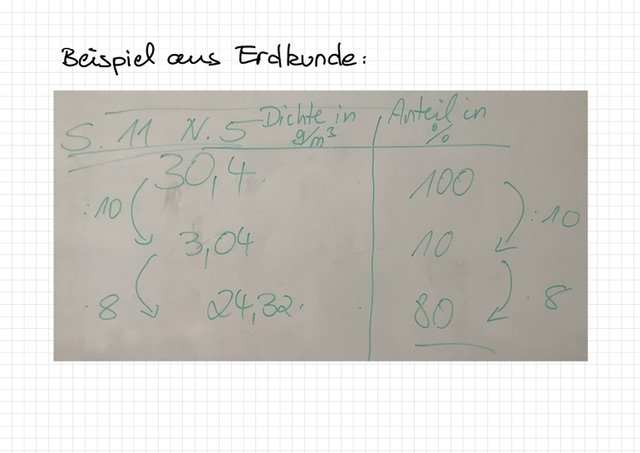 Beispiel aus Erdkunde:
S. 11 N. 5 Dichte in g/m³ Anteil in %
30,4 100
:10 :10
3,04 10
·8 ·8
24,32 80